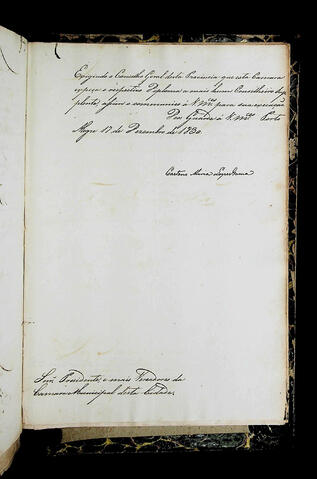 Exigindo o Conselho Geral desta Provincia que esta Camara
expeça o respectivo Diploma a mais hum Conselheiro Sup-
plente, assim o communico á V. Mces. para sua execução.
Deos Guarde á V. Mces. Porto
Alegre 17 de Dezembro de 1830.
Caetano Maria Lopes Gama
Snrs. Presidente, e mais Vereadores da
Camara Municipal desta Cidade.